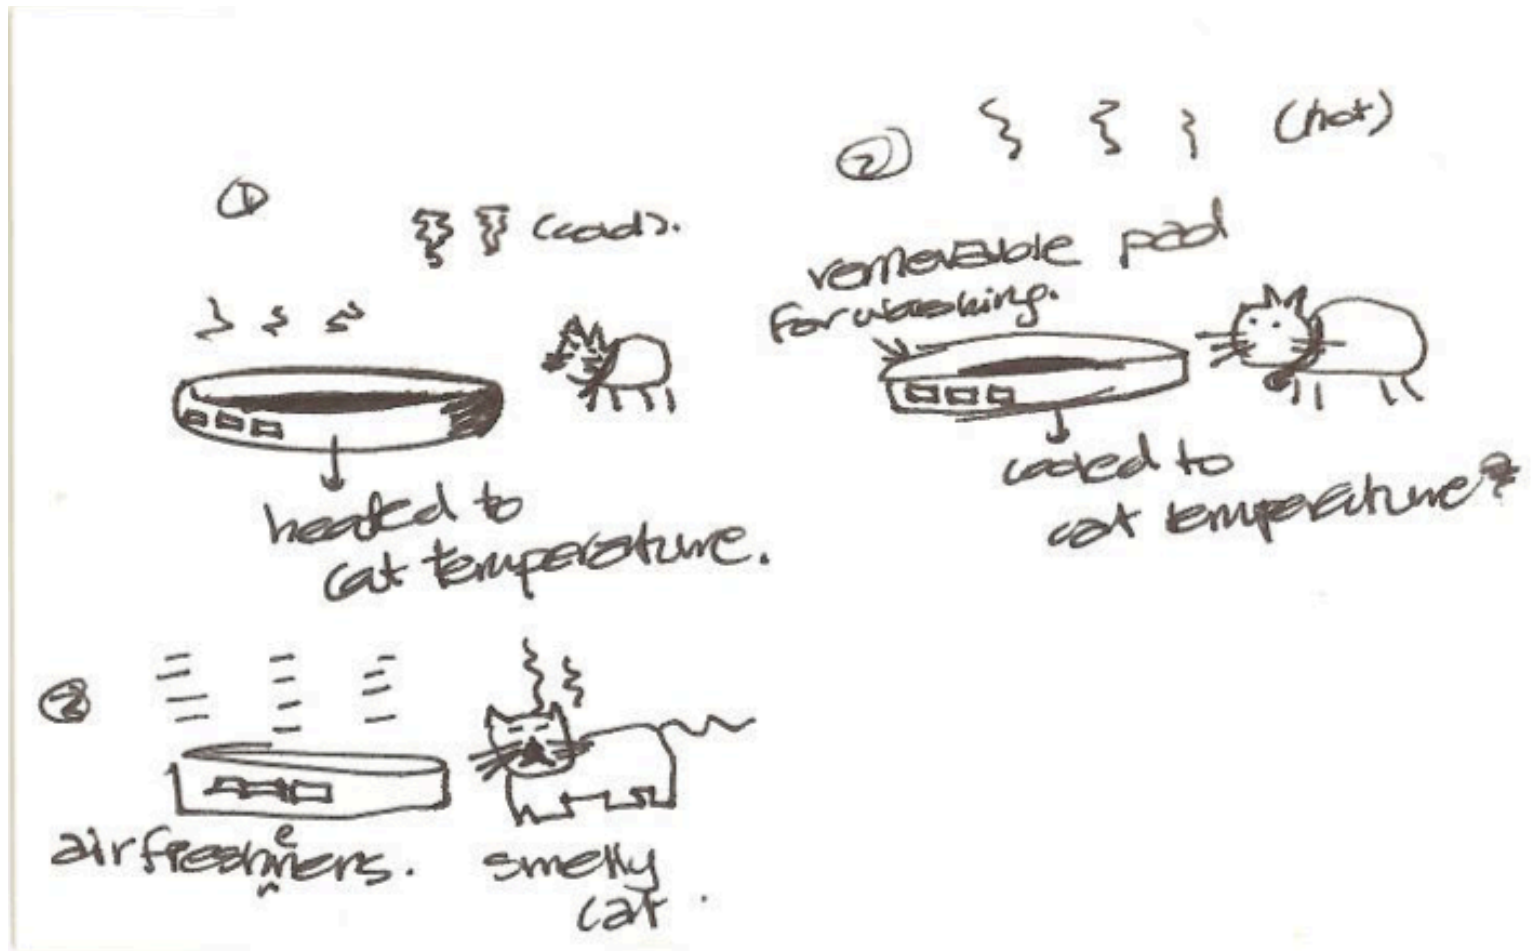 1
(cold).
heated to
cat temperature.
2
(hot)
removable pad
for washing.
cooled to
cat temperature
3
air fresheners.
smelly
cat.